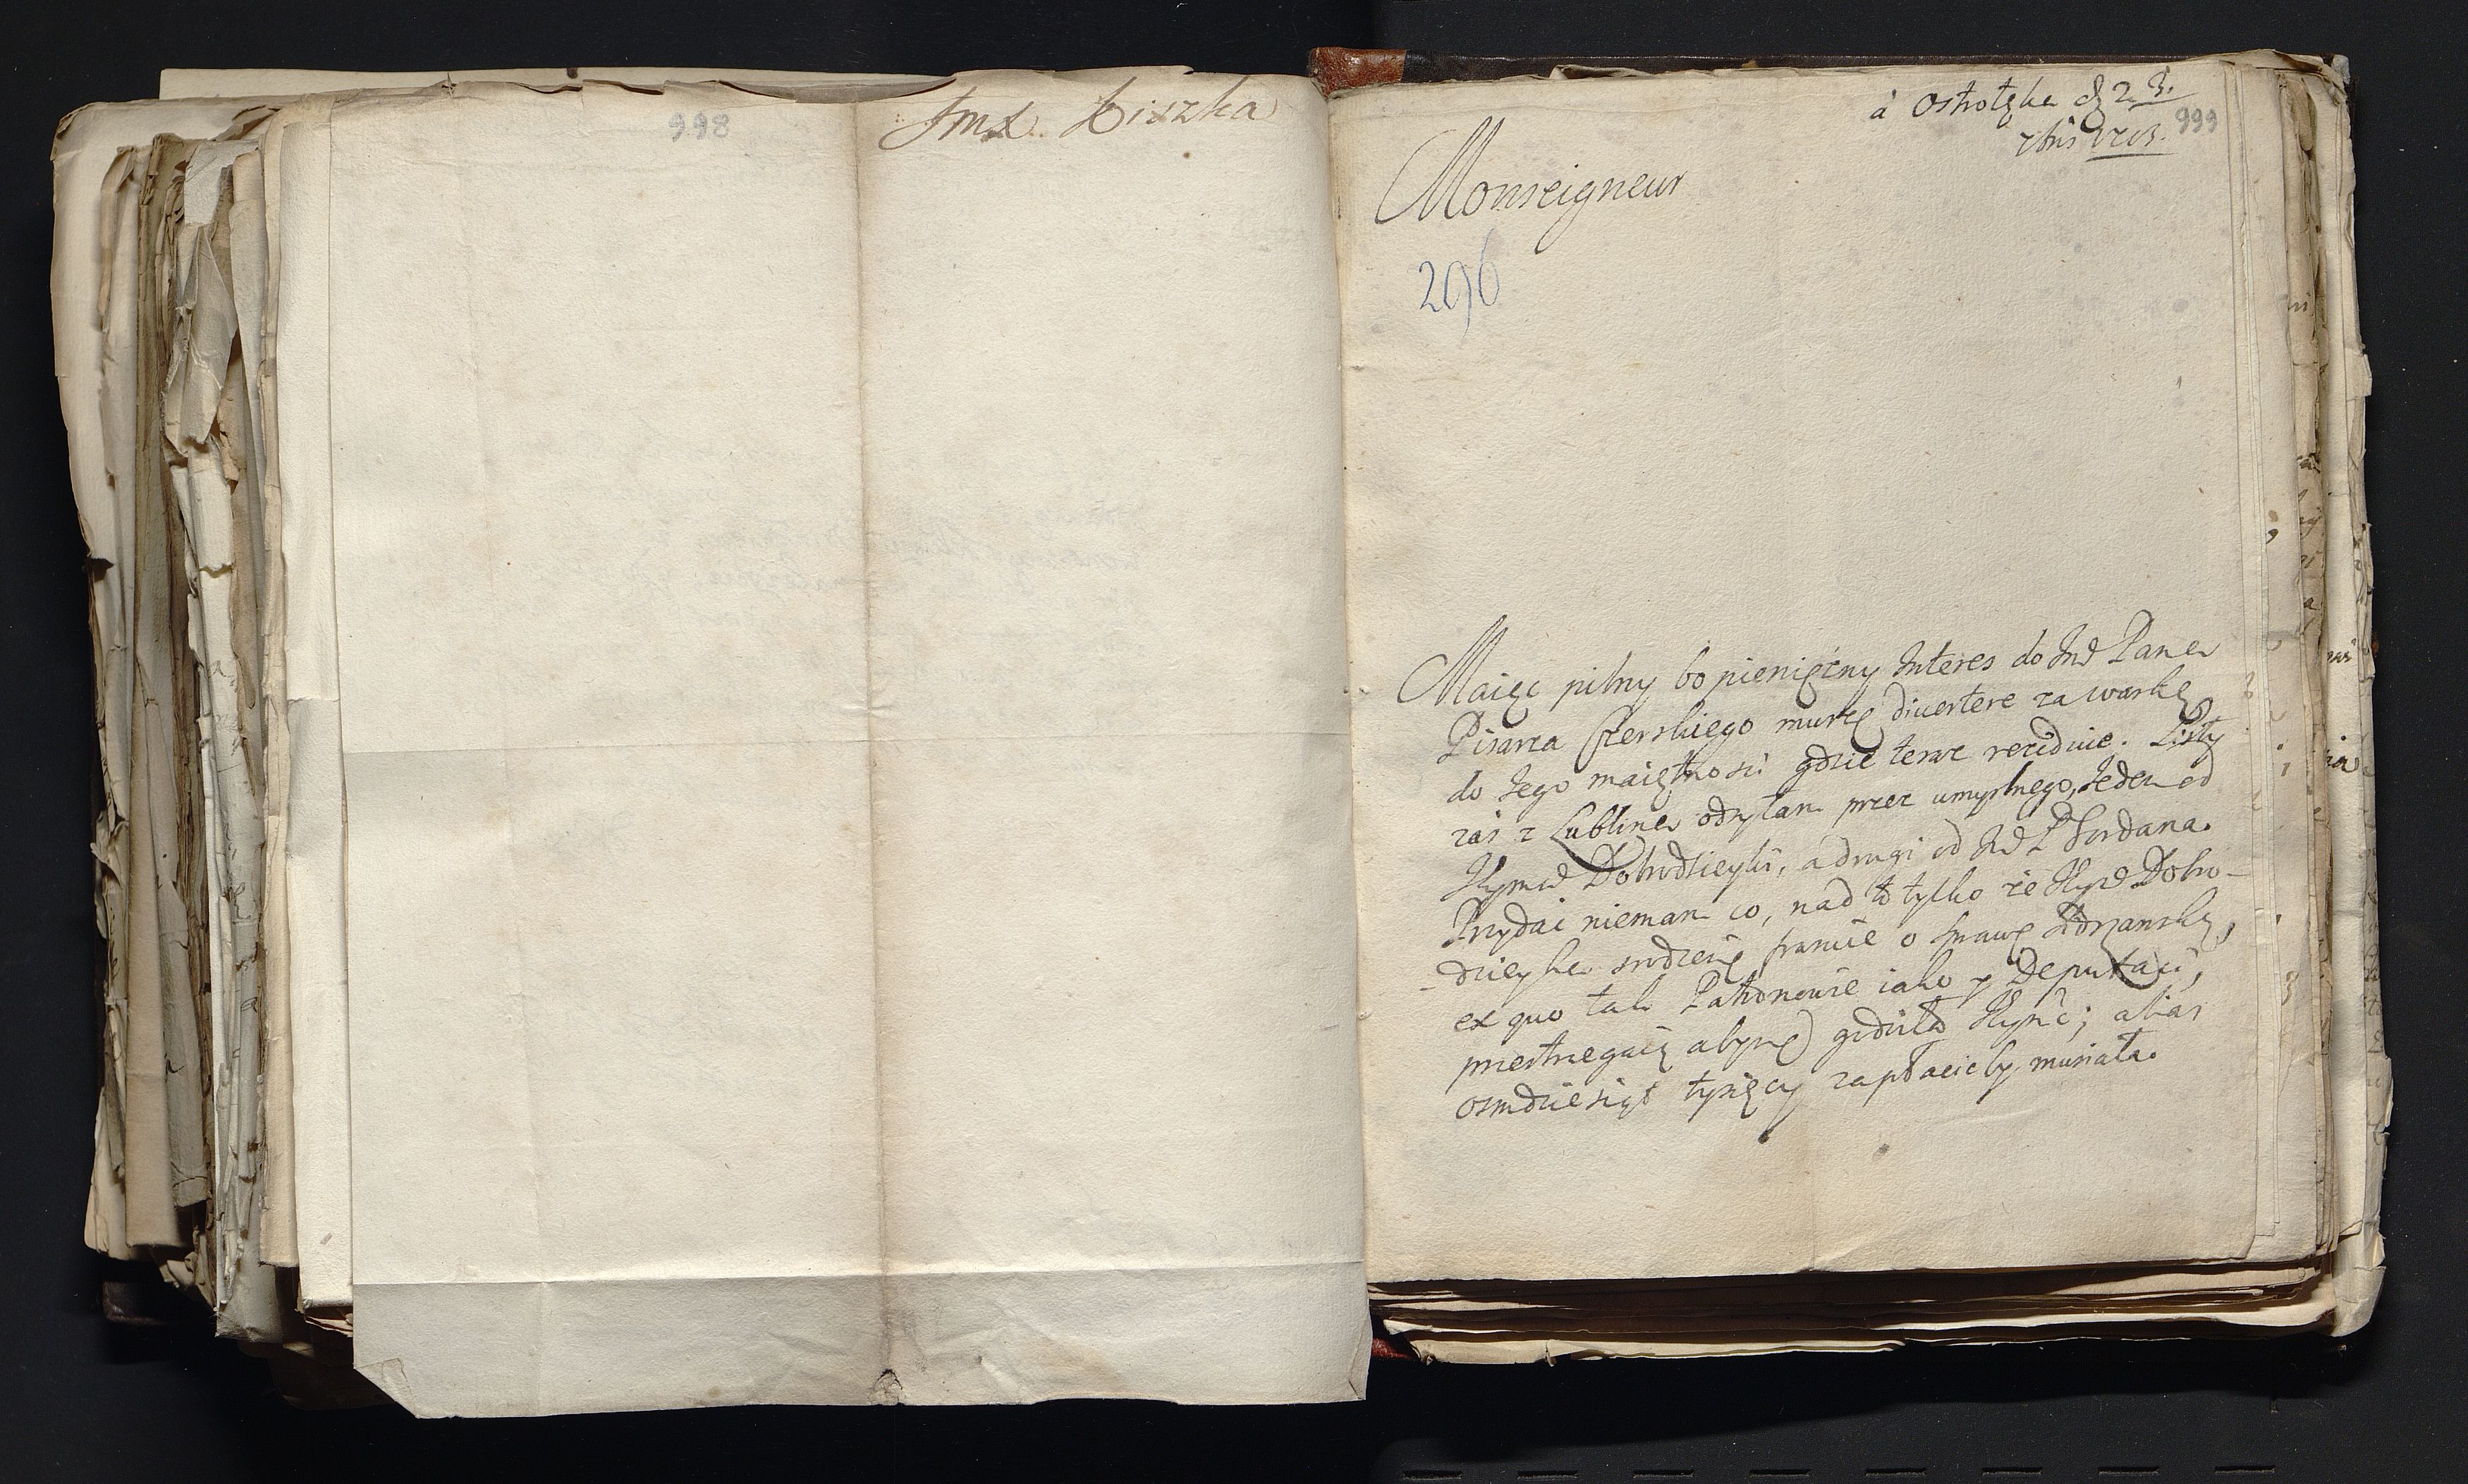 998
Jmx Kiszka
à Ostrołęka d 23.
7bris 1703.
999
Monseigneur
296
Maiąc pilny bo pieniężny Interes do Jmd Pana
Pisarza muszę divertere za warkę
do Jego maiętnosci gdzie teraz reziduie. Listy
zas z Lublina odsyłam przez umyslnego, Jeden od
Dobrodzieyki, a drugi od Jmd P Jordana.
Przydac niemam co, nad to tylko że Dobro-
dzieyka srodze się frasuie o sprawę
ex quo tak Patronowie iako y Deputaci,
przestrzegaią aby się godziła ; alias
osmdziesiąt tysięcy zapłacic by musiała.